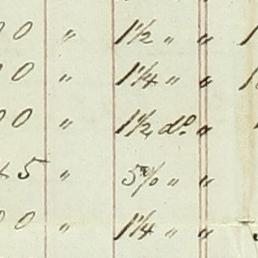 00 〃 1½ 〃 〃
00 〃 1¼ 〃 〃
00 〃 1½ do 〃
45 〃 5% 〃 〃
00 〃 1¼ 〃 〃